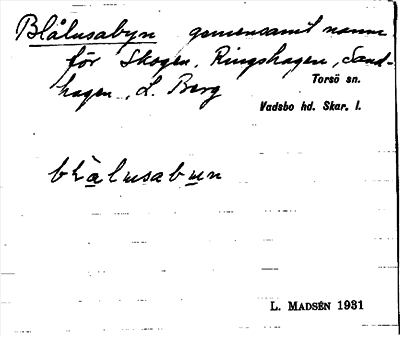 Blålusabyn gemensamt namn
för Skogen, Ringshagen, Sand-
hagen, L. Berg
Torsö sn.
Vadsbo hd. Skar. l.
blålusabun
L. MADSÉN 1931